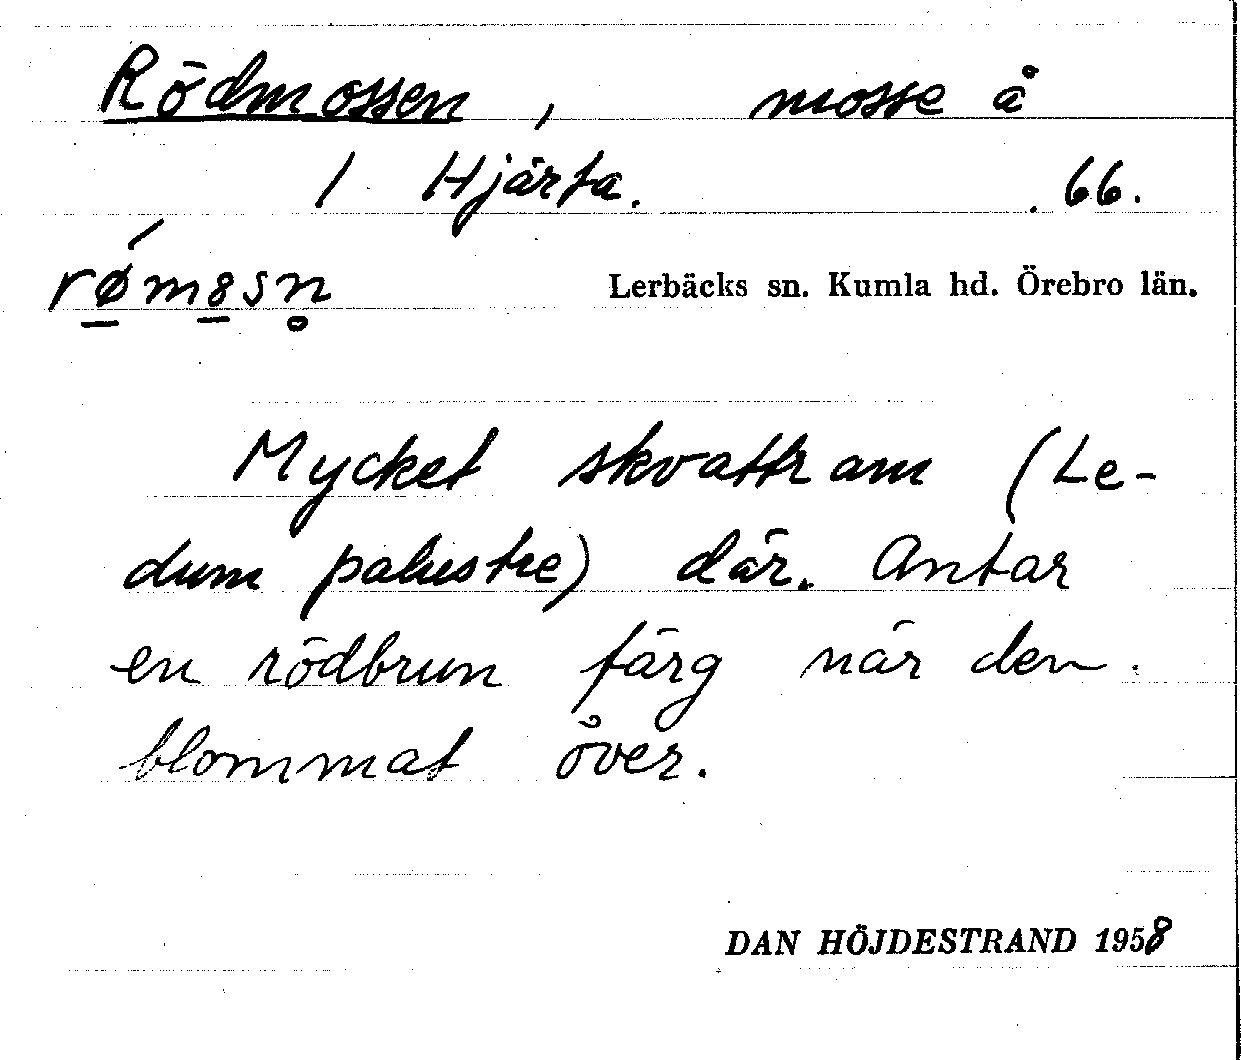 Rödmossen, mosse å
1 Hjärta. 66.
rǿm8sn̥
Lerbäcks sn. Kumla hd. Örebro län.
Mycket skvattram (Le-
dum palustre) där. Antar
en rödbrun färg när den
blommat över.
DAN HÖJDESTRAND 1958